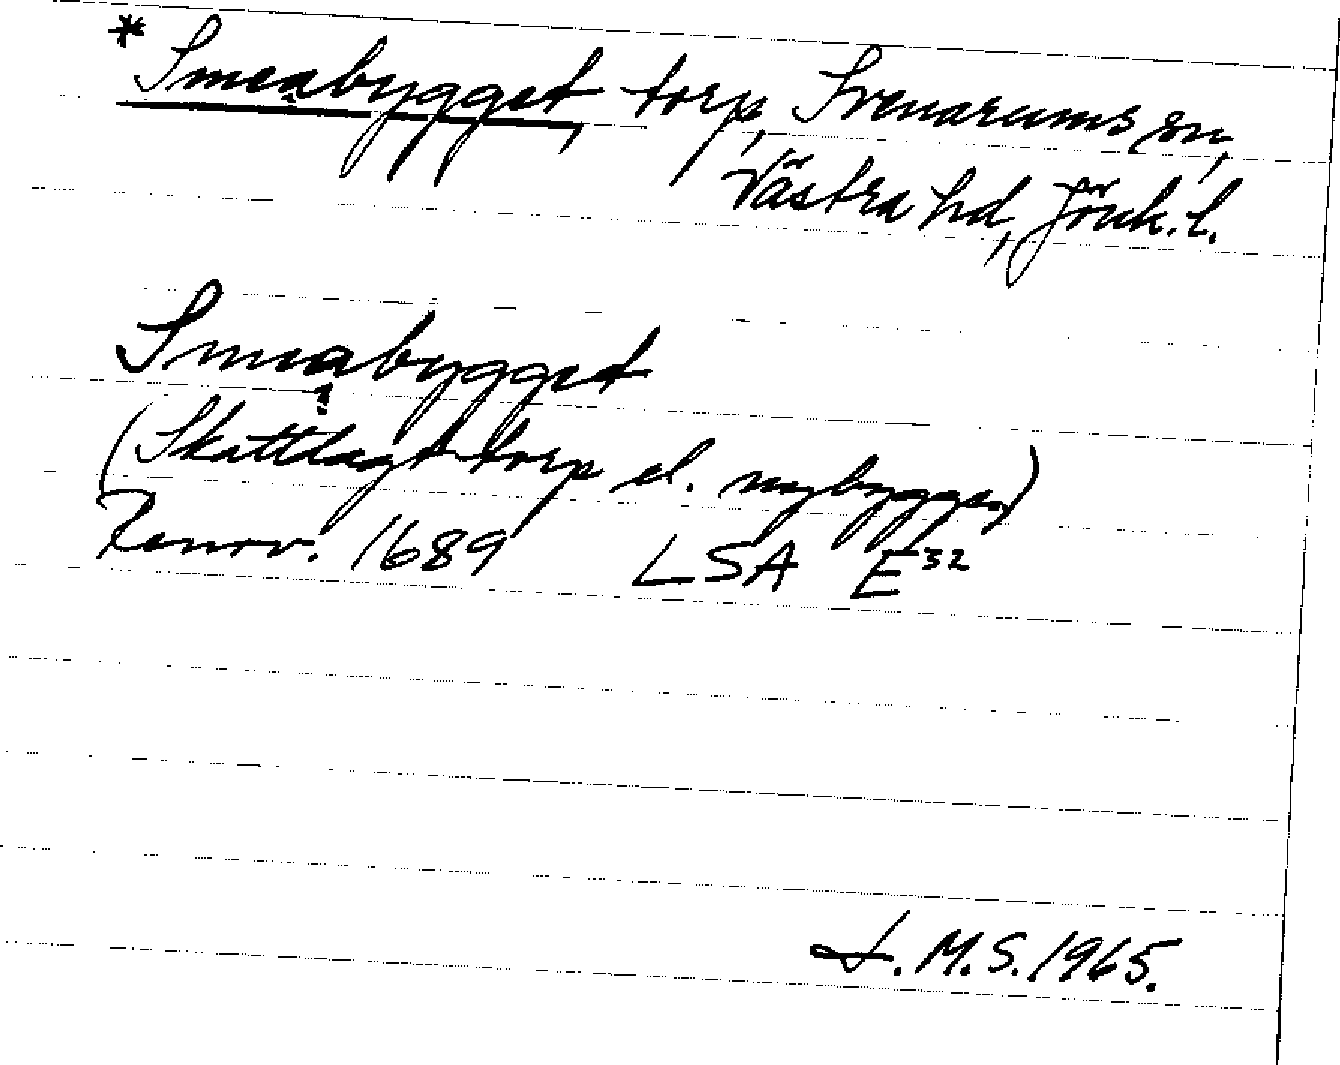 * Smeabygget, torp, Svenarums sn,
Västra hd, Jönk. l.
Smeabygget
(Skattlagt torp el. nybygge)
Renov. 1689 LSA E32
I. M. S. 1965.